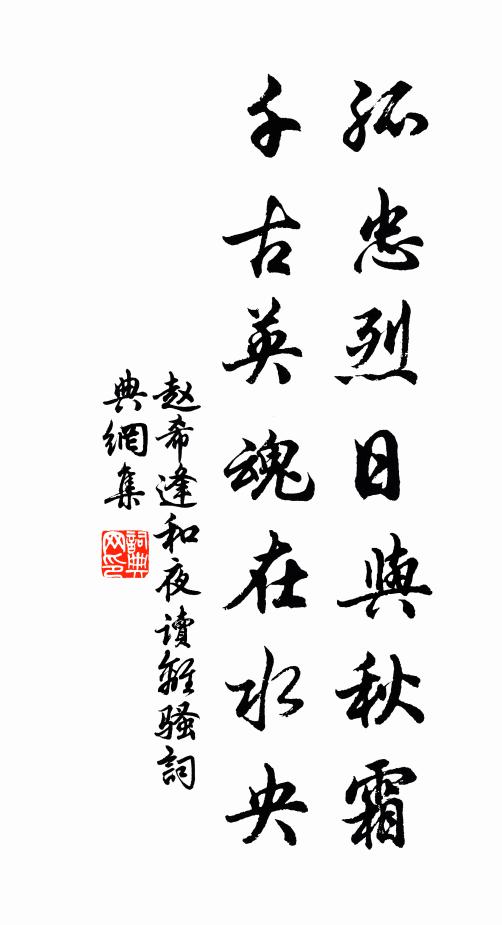 孤忠烈日與秋霜
千古英魂在水央
赵希逢和夜讀離骚詞
典網集
詞典
网印